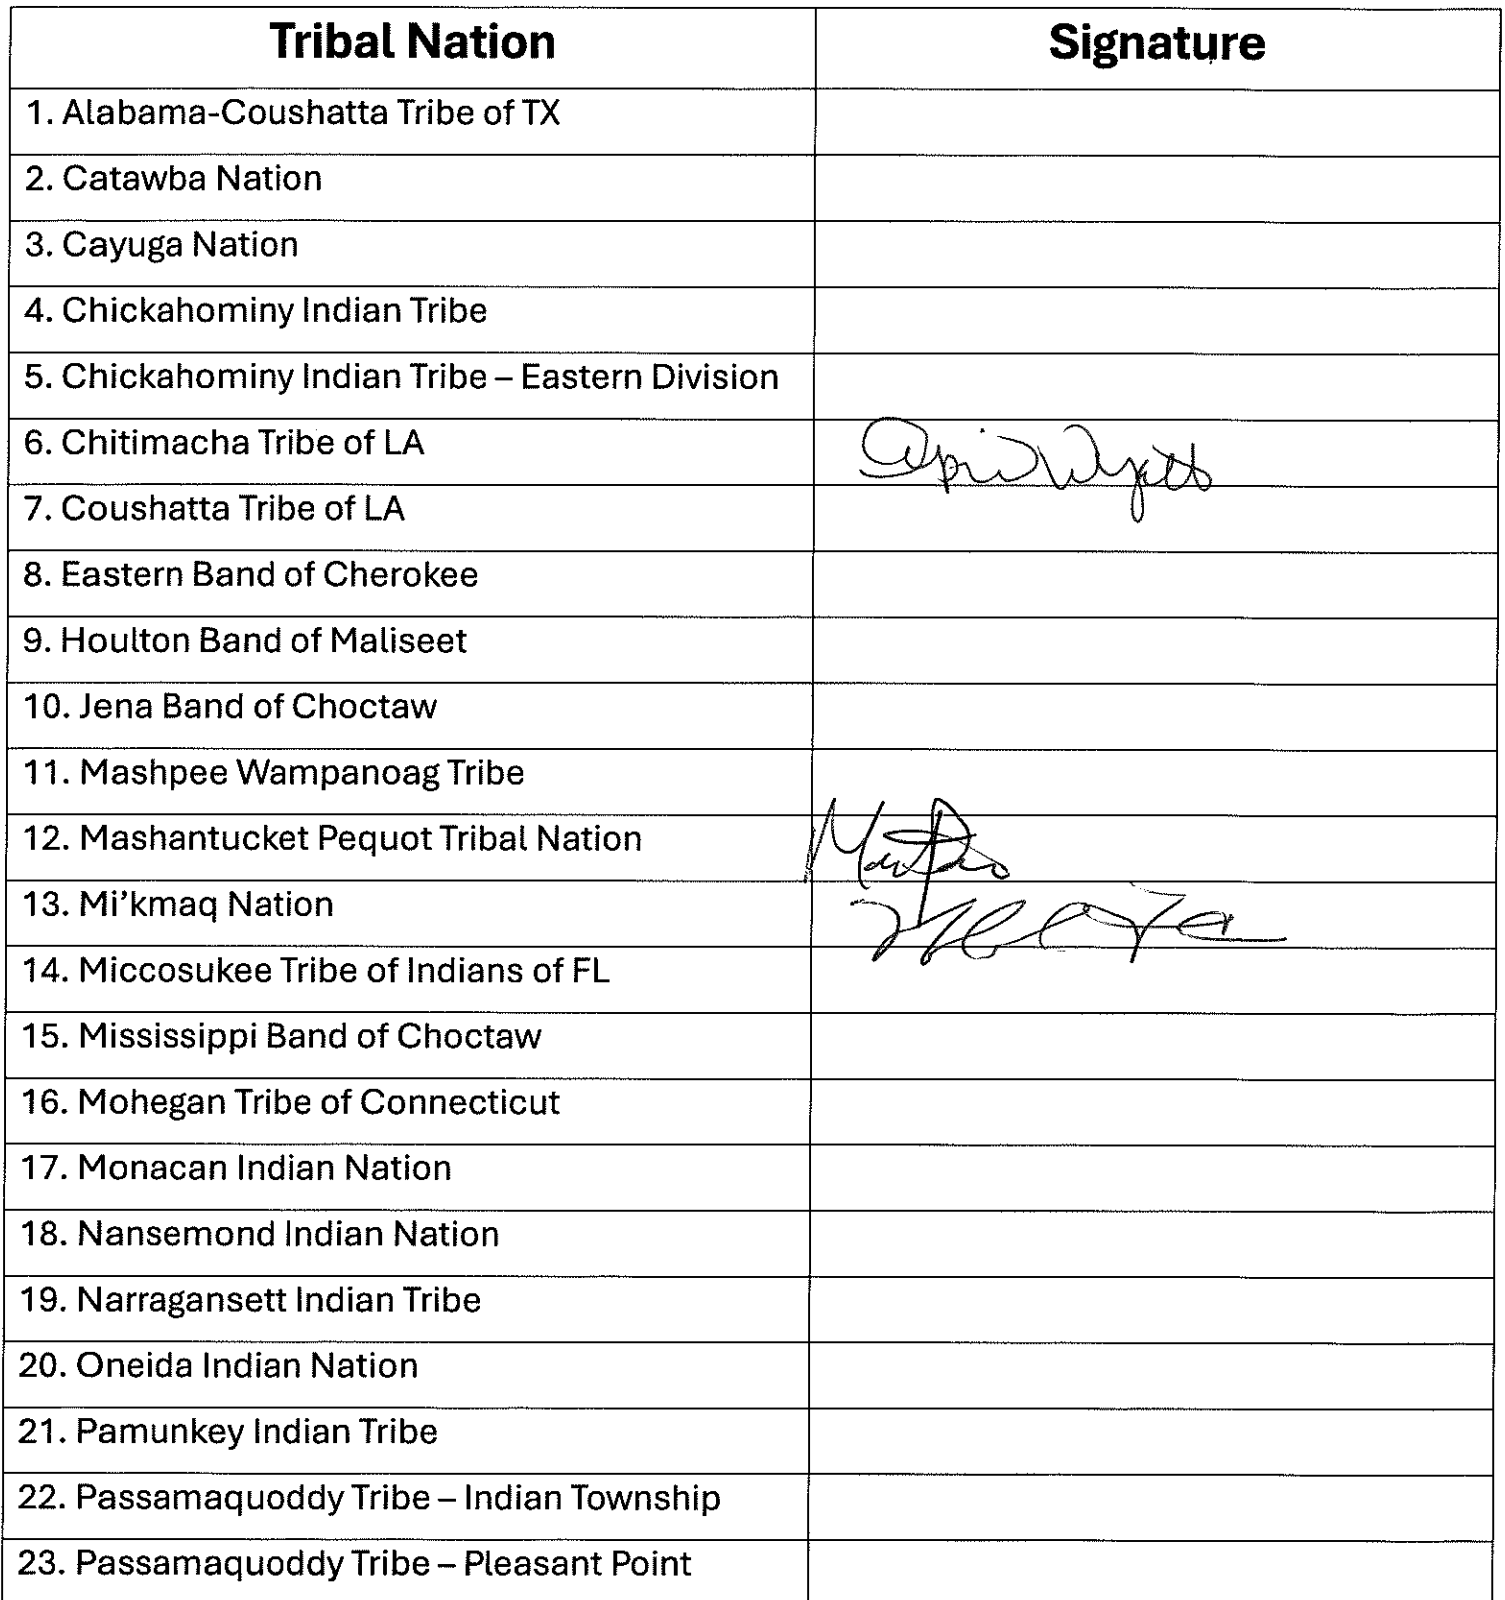 Tribal Nation Signature
1. Alabama-Coushatta Tribe of TX
2. Catawba Nation
3. Cayuga Nation
4. Chickahominy Indian Tribe
5. Chickahominy Indian Tribe – Eastern Division
6. Chitimacha Tribe of LA April Wyatt
7. Coushatta Tribe of LA
8. Eastern Band of Cherokee
9. Houlton Band of Maliseet
10. Jena Band of Choctaw
11. Mashpee Wampanoag Tribe
12. Mashantucket Pequot Tribal Nation
13. Mi’kmaq Nation
14. Miccosukee Tribe of Indians of FL
15. Mississippi Band of Choctaw
16. Mohegan Tribe of Connecticut
17. Monacan Indian Nation
18. Nansemond Indian Nation
19. Narragansett Indian Tribe
20. Oneida Indian Nation
21. Pamunkey Indian Tribe
22. Passamaquoddy Tribe – Indian Township
23. Passamaquoddy Tribe – Pleasant Point